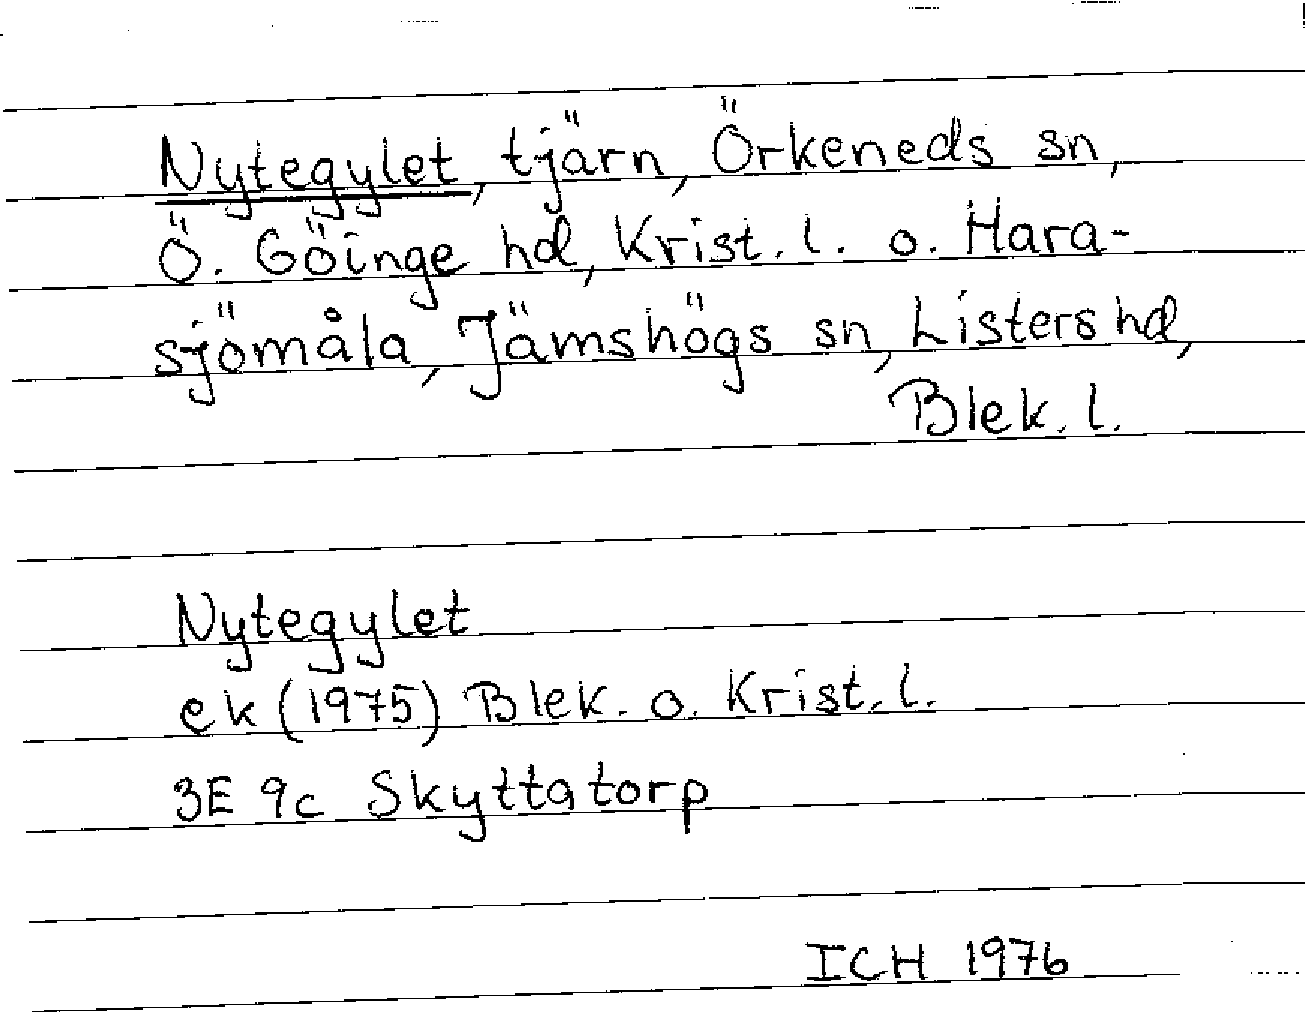 Nytegylet, tjärn, Örkeneds sn,
Ö. Göinge hd, Krist. l. o. Hara-
sjömåla, Jämshögs sn, Listers hd,
Blek. l.
Nytegylet
ek (1975) Blek. o. Krist. l.
3E 9c Skyttatorp
ICH 1976